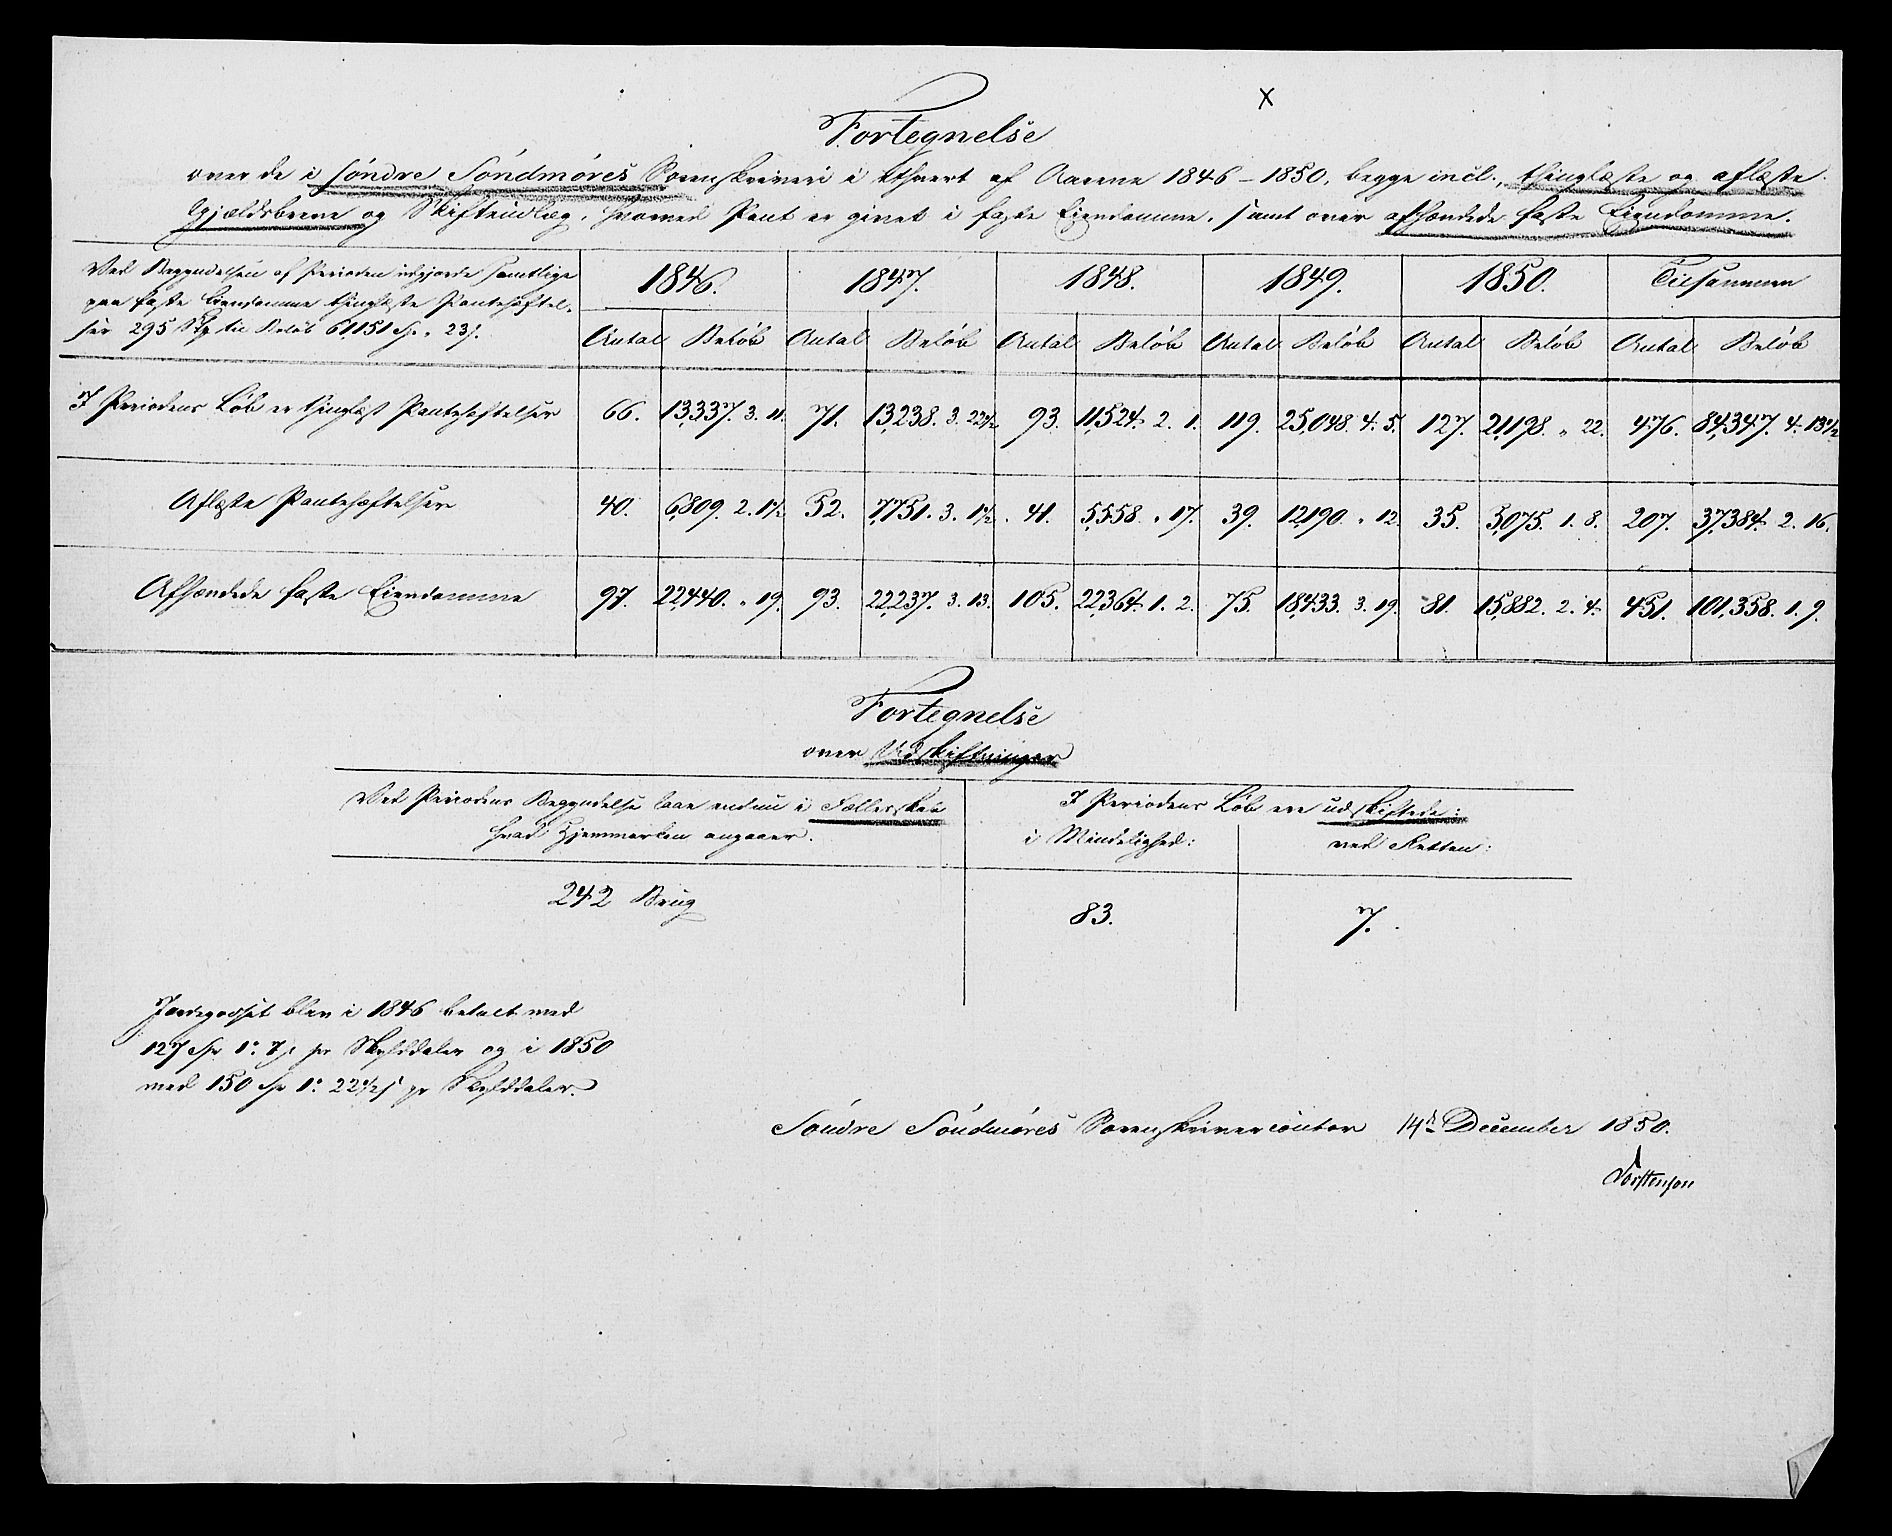 X
Fortegnelse
over de i Søndre Söndmöres Sorenskriveri i ethvert af Aarene 1846 – 1850, begge incl., thinglæste og aflæste
Gjældsbreve og Skifteudlæg, hvorved Pant er givet i faste Eiendomme, samt over afhændede faste Eiendomme.
Ved Begyndelsen af Perioden udgjorde samtlige
paa faste Eiendomme thinglæste Pantehæftel-
ser 295 Stk til Beløb 61,151 Sp. „ 23 s.
1846. 1847. 1848. 1849. 1850. Tilsammen
Antal Beløb Antal Beløb Antal Beløb Antal Beløb Antal Beløb Antal Beløb
I Periodens Løb er thinglæst Pantehæftelser 66. 13,337. 3. 11. 71. 13,238. 3. 22½ 93. 11,524. 2. 1. 119. 25,048. 4. 5. 127. 21,198. „ 22. 476. 84,347. 4. 13½
Aflæste Pantehæftelser 40. 6,809. 2. 1½ 52. 7,751. 3. 1½ 41. 5,558. „ 17. 39. 12,190. „ 12. 35. 5,075. 1. 8. 207. 37,384. 2. 16.
Afhændede faste Eiendomme 97. 22,440. „ 19. 93. 22,237. 3. 13. 105. 22,364. 1. 2. 75. 18,433. 3. 19. 81. 15,882. 2. 4. 451. 101,358. 1. 9.
Fortegnelse
over Udskiftninger
Ved Periodens Begyndelse laae endnu i Fælleskab
hvad Hjemmarken angaaer.
I Periodens Løb ere udskiftede:
i Mindelighed: ved Retten:
242 Brug 83. 7.
Jordegodset blev i 1846 betalt med
127 Sp 1: 7 s pr Skylddaler og i 1850
med 150 Sp 1: 22½ s pr Skylddaler.
Søndre Söndmöres Sorenskrivercontor 14d December 1850.
Torstenson